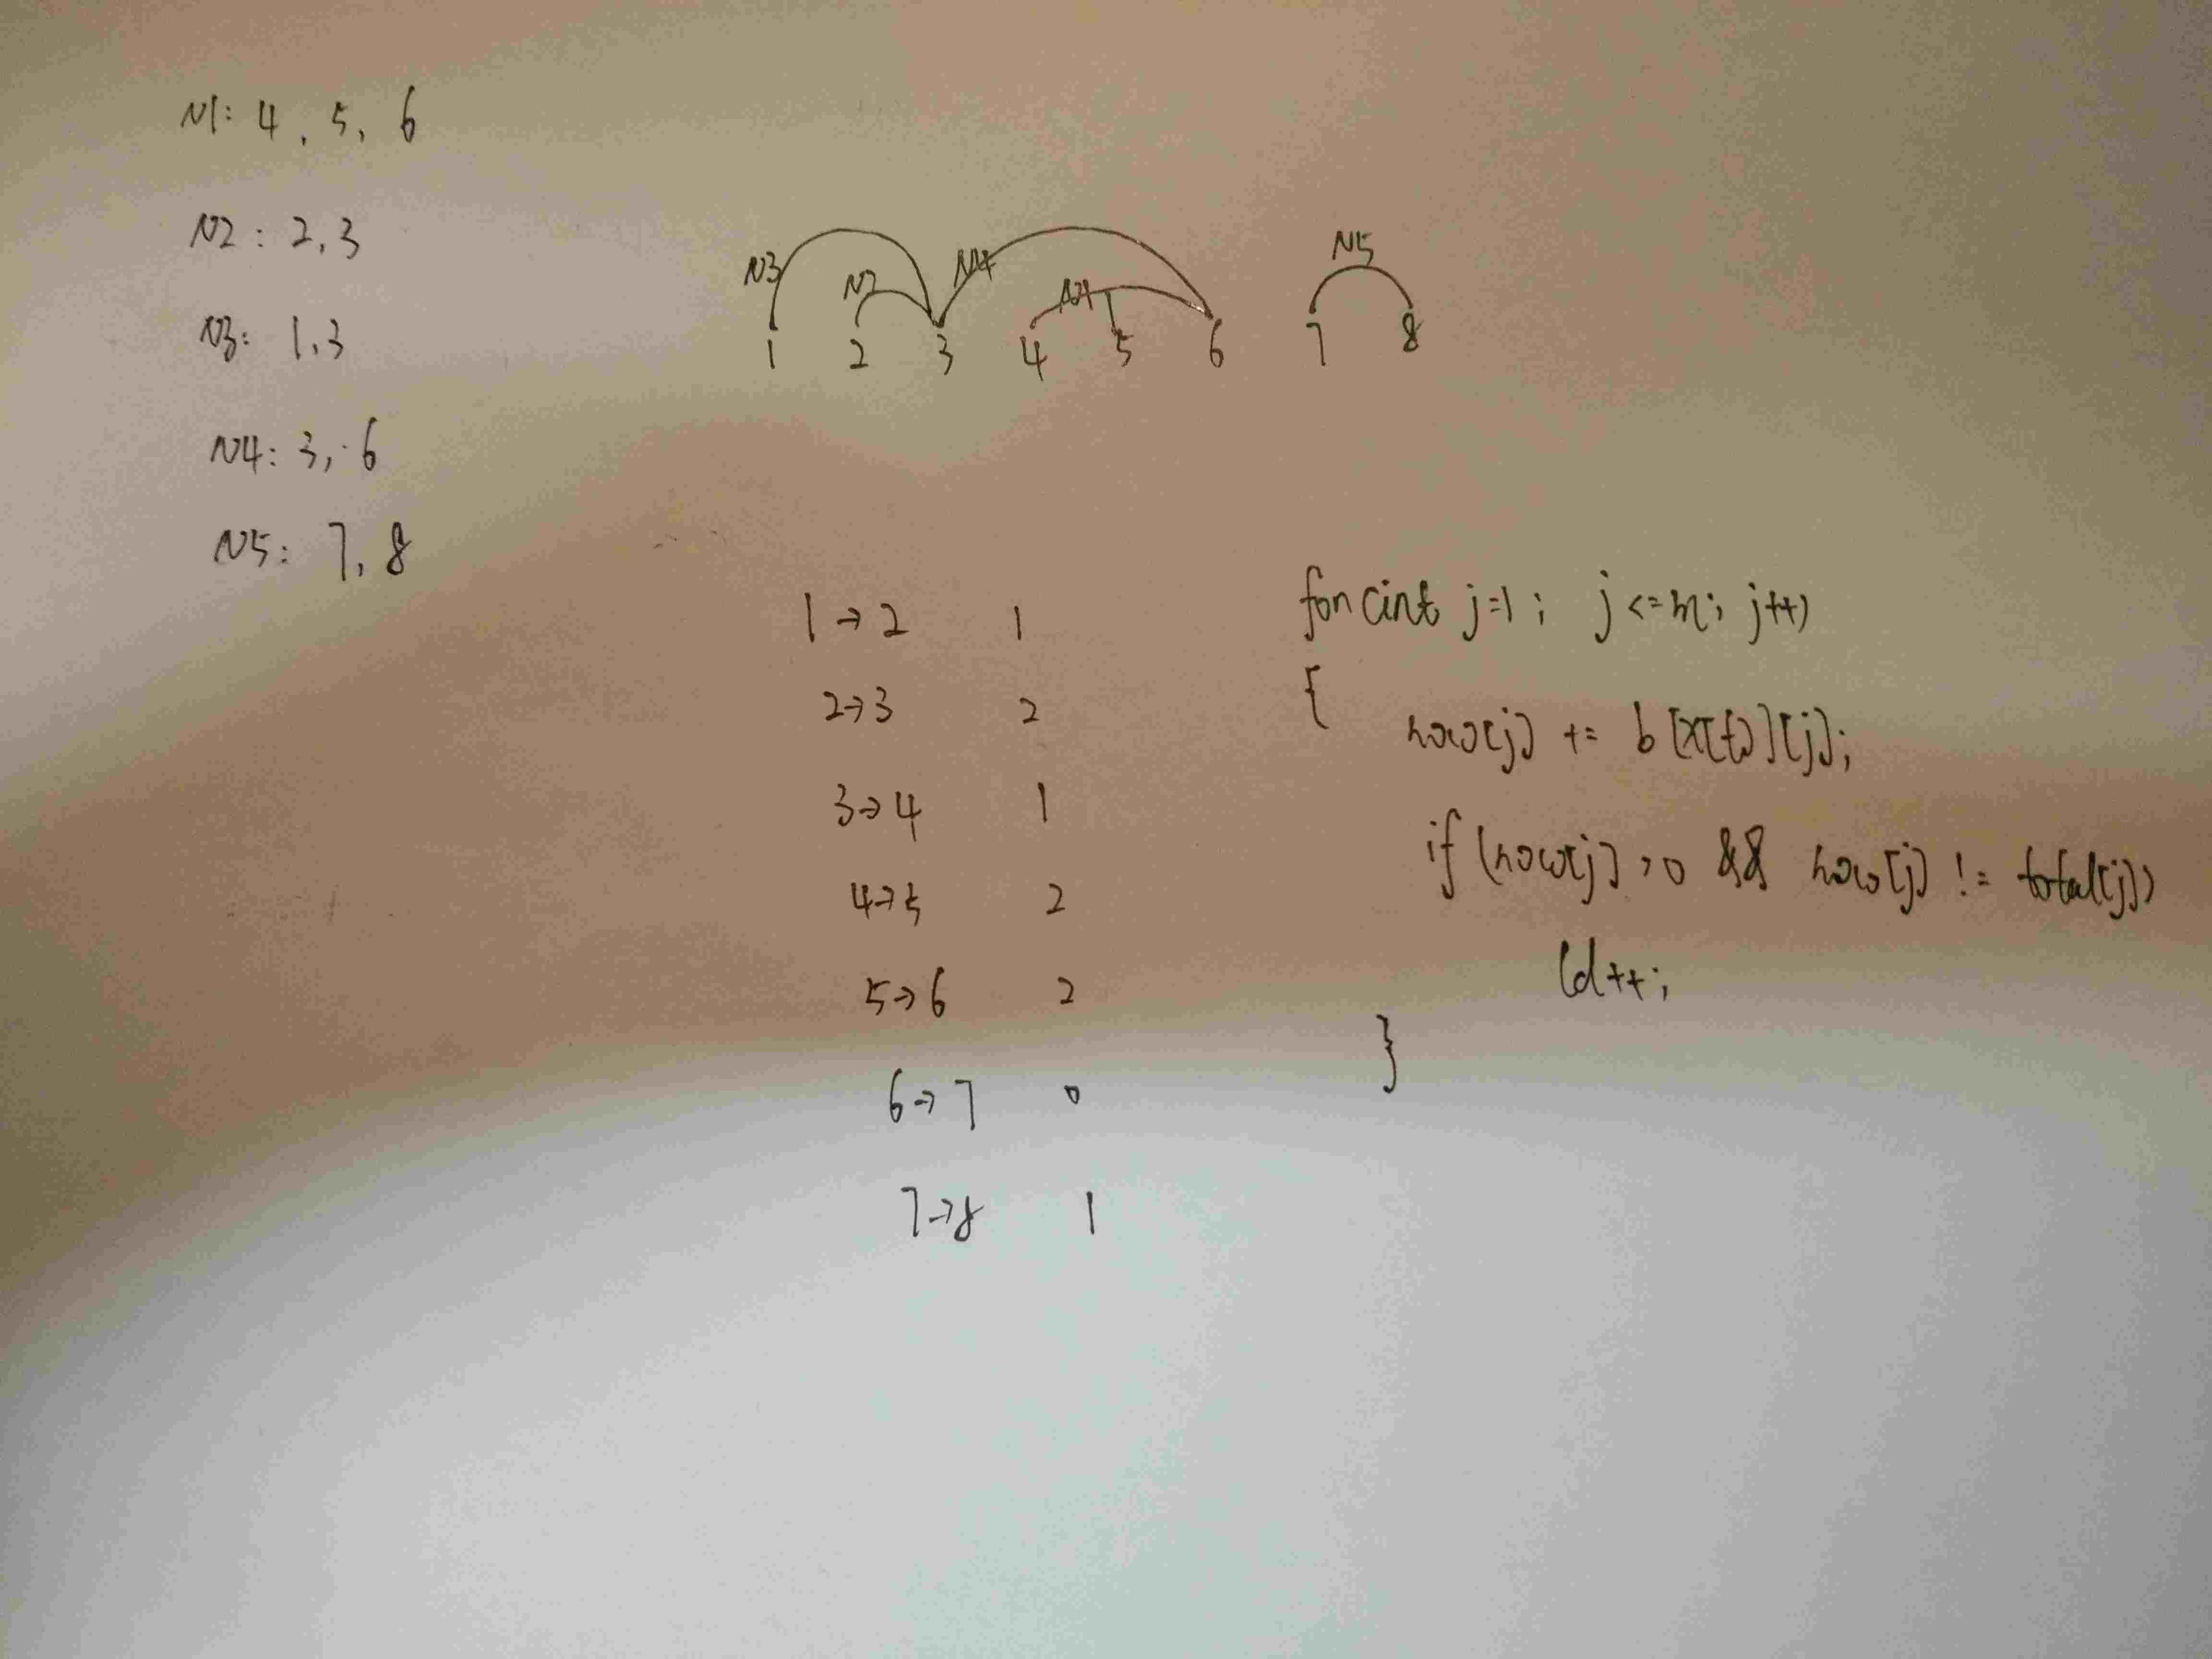 N1: 4, 5, 6
N2: 2,3
N3: 1,3
N4: 3, 6
N5: 7, 8
N3 N2 N4 N1 N5
1 2 3 4 5 6 7 8
1→2 1
2→3 2
3→4 1
4→5 2
5→6 2
6→7 0
7→8 1
for(int j=1; j<=m; j++)
{
now[j] += b[x[t]][j];
if(now[j]>0 && now[j] != total[j])
ld++;
}